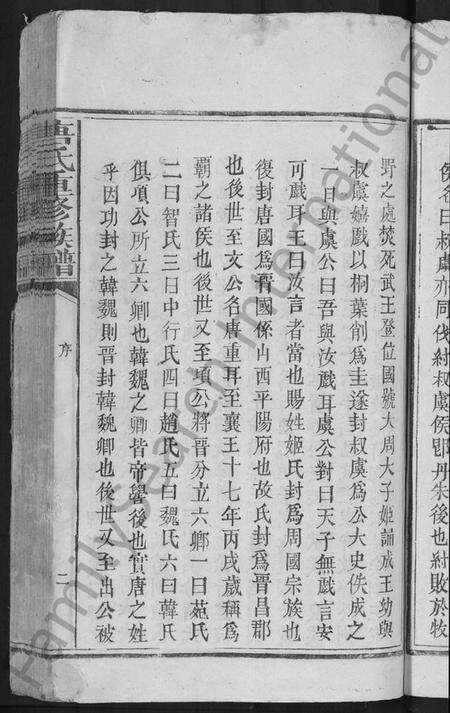 侯名曰叔虞亦同伐紂叔虞侯卽丹朱後也紂敗於牧
野之處焚死武王登位國號大周大子姬誦成王幼與
叔虞嬉戲以桐葉削爲圭送封叔虞爲公大史佚成之
一日與虞公曰吾與汝戲耳虞公對曰天子無戲言安
可戲耳王曰汝言者當也賜姓姬氏封爲周國宗族也
復封唐國爲晉國係山西平陽府也故氏封爲晉昌郡
也後世至文公名唐重耳至襄王十七年丙戌歲稱爲
霸之諸侯也後世又至項公將晉分立六卿一曰范氏
二曰智氏三曰中行氏四曰趙氏五曰魏氏六曰韓氏
俱項公所立六卿也韓魏之卿皆帝嚳後也實唐之姓
乎因功封之韓魏則晉封韓魏卿也後世又至出公被
唐氏重修族譜
序
二
FamilySearch International